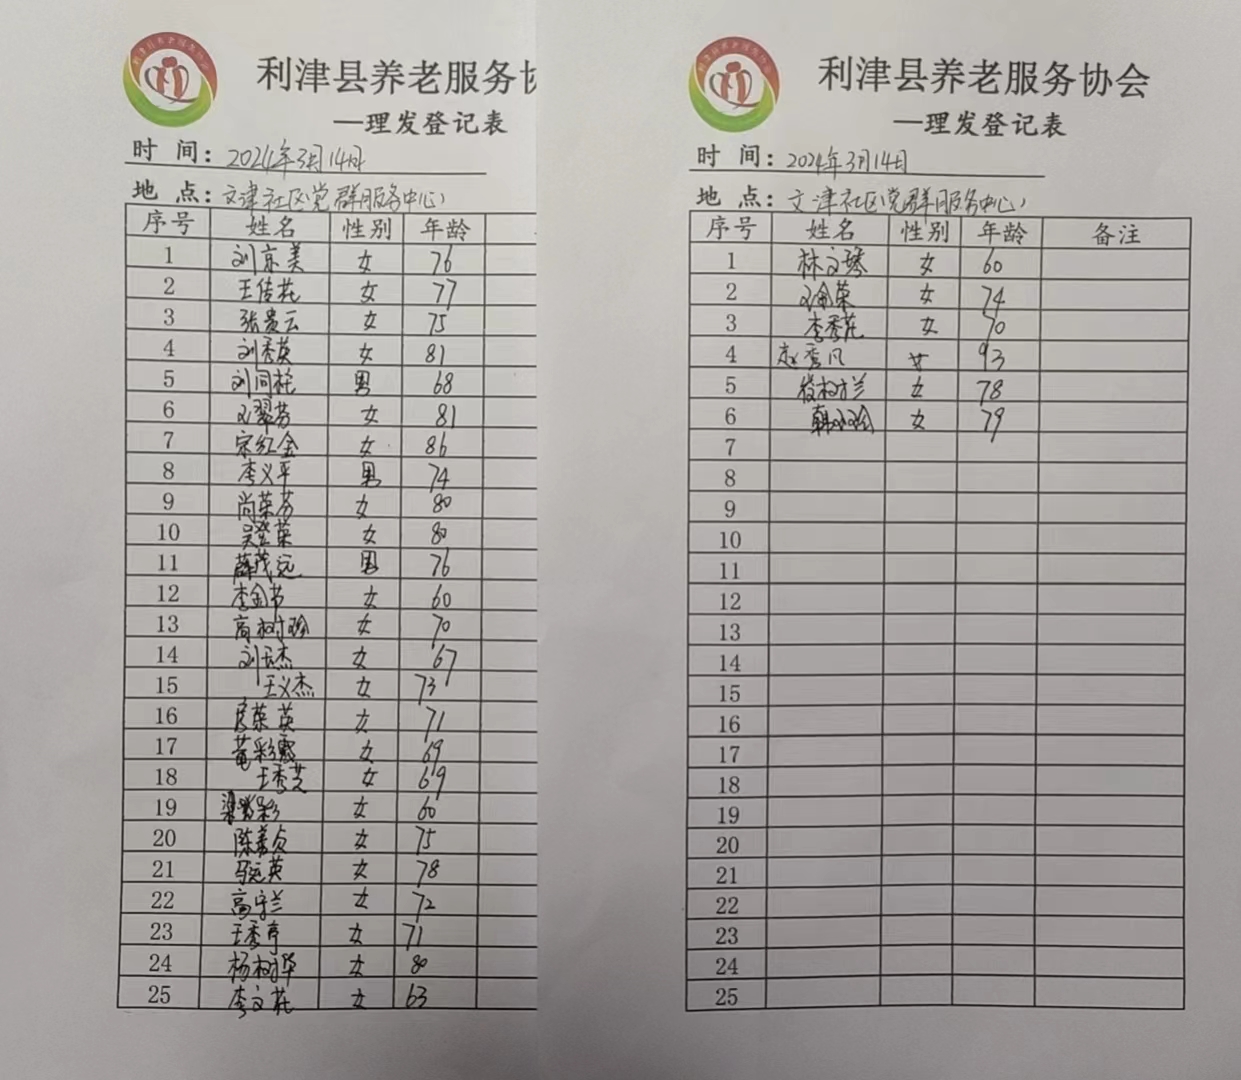 利津县养老服务协
—理发登记表
时 间：2024年3月14日
地 点：文津社区党群服务中心
序号 姓名 性别 年龄
1 刘京美 女 76
2 王传花 女 77
3 张贵云 女 75
4 刘秀英 女 81
5 刘同柱 男 68
6 刘翠芬 女 81
7 宋红金 女 86
8 李义平 男 74
9 尚荣芬 女 80
10 吴登荣 女 80
11 薛茂远 男 76
12 李金芳 女 60
13 高树珍 女 70
14 刘玉杰 女 67
15 王义杰 女 73
16 房荣英 女 71
17 黄彩霞 女 69
18 王秀芝 女 69
19 女 60
20 陈善贞 女 75
21 马远英 女 78
22 高守兰 女 72
23 王秀亭 女 71
24 杨树华 女 80
25 李文花 女 63
利津县养老服务协会
—理发登记表
时 间：2024年3月14日
地 点：文津社区党群服务中心
序号 姓名 性别 年龄 备注
1 林文琴 女 60
2 刘金荣 女 74
3 李秀花 女 70
4 赵秀凡 女 93
5 树兰 女 78
6 韩 女 79
7
8
9
10
11
12
13
14
15
16
17
18
19
20
21
22
23
24
25